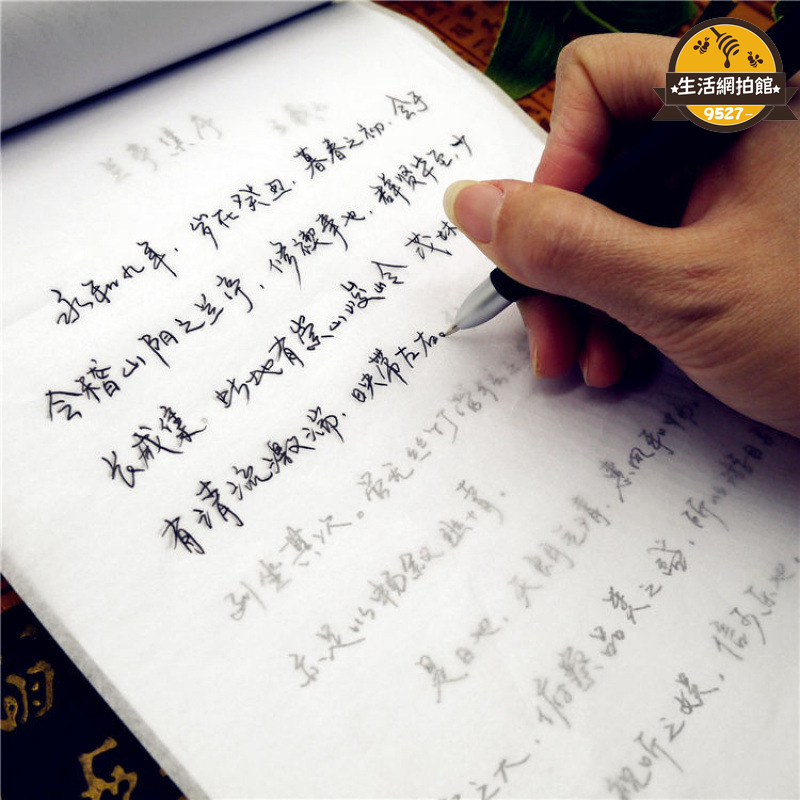 兰亭集序 王羲之
永和九年，岁在癸丑，暮春之初，会于
会稽山阴之兰亭，修禊事也，群贤毕至，少
长咸集。此地有崇山峻岭 茂林
有清流激湍，映带左右。
列坐其次。虽无丝竹管弦之
亦足以畅叙幽情。
是日也，天朗气清，惠风和畅。
之大，俯察品类之盛，所以游目
视听之娱，信可乐也。
生活網拍館
9527-